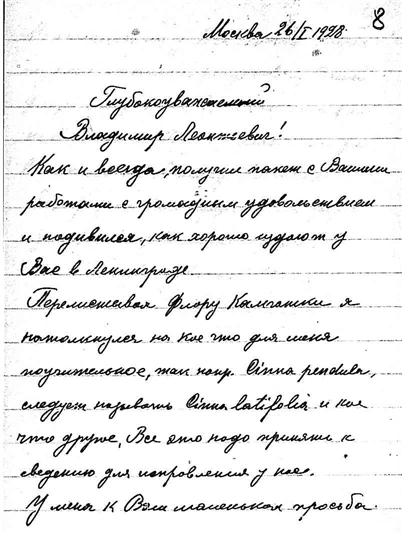 8
Москва 26/I 1928
Глубокоуважаемый
Владимир Леонтьевич!
Как и всегда, получил пакет с Вашими
работами с громадным удовольствием
и подивился, как хорошо издают у
Вас в Ленинграде.
Перелистывая Флору Камчатки я
натолкнулся на кое что для меня
поучительное, так напр. Cinna pendula,
следует называть Cinna latifolia и кое
что другое. Все это надо принять к
сведению для исправления у нас.
У меня к Вам маленькая просьба.